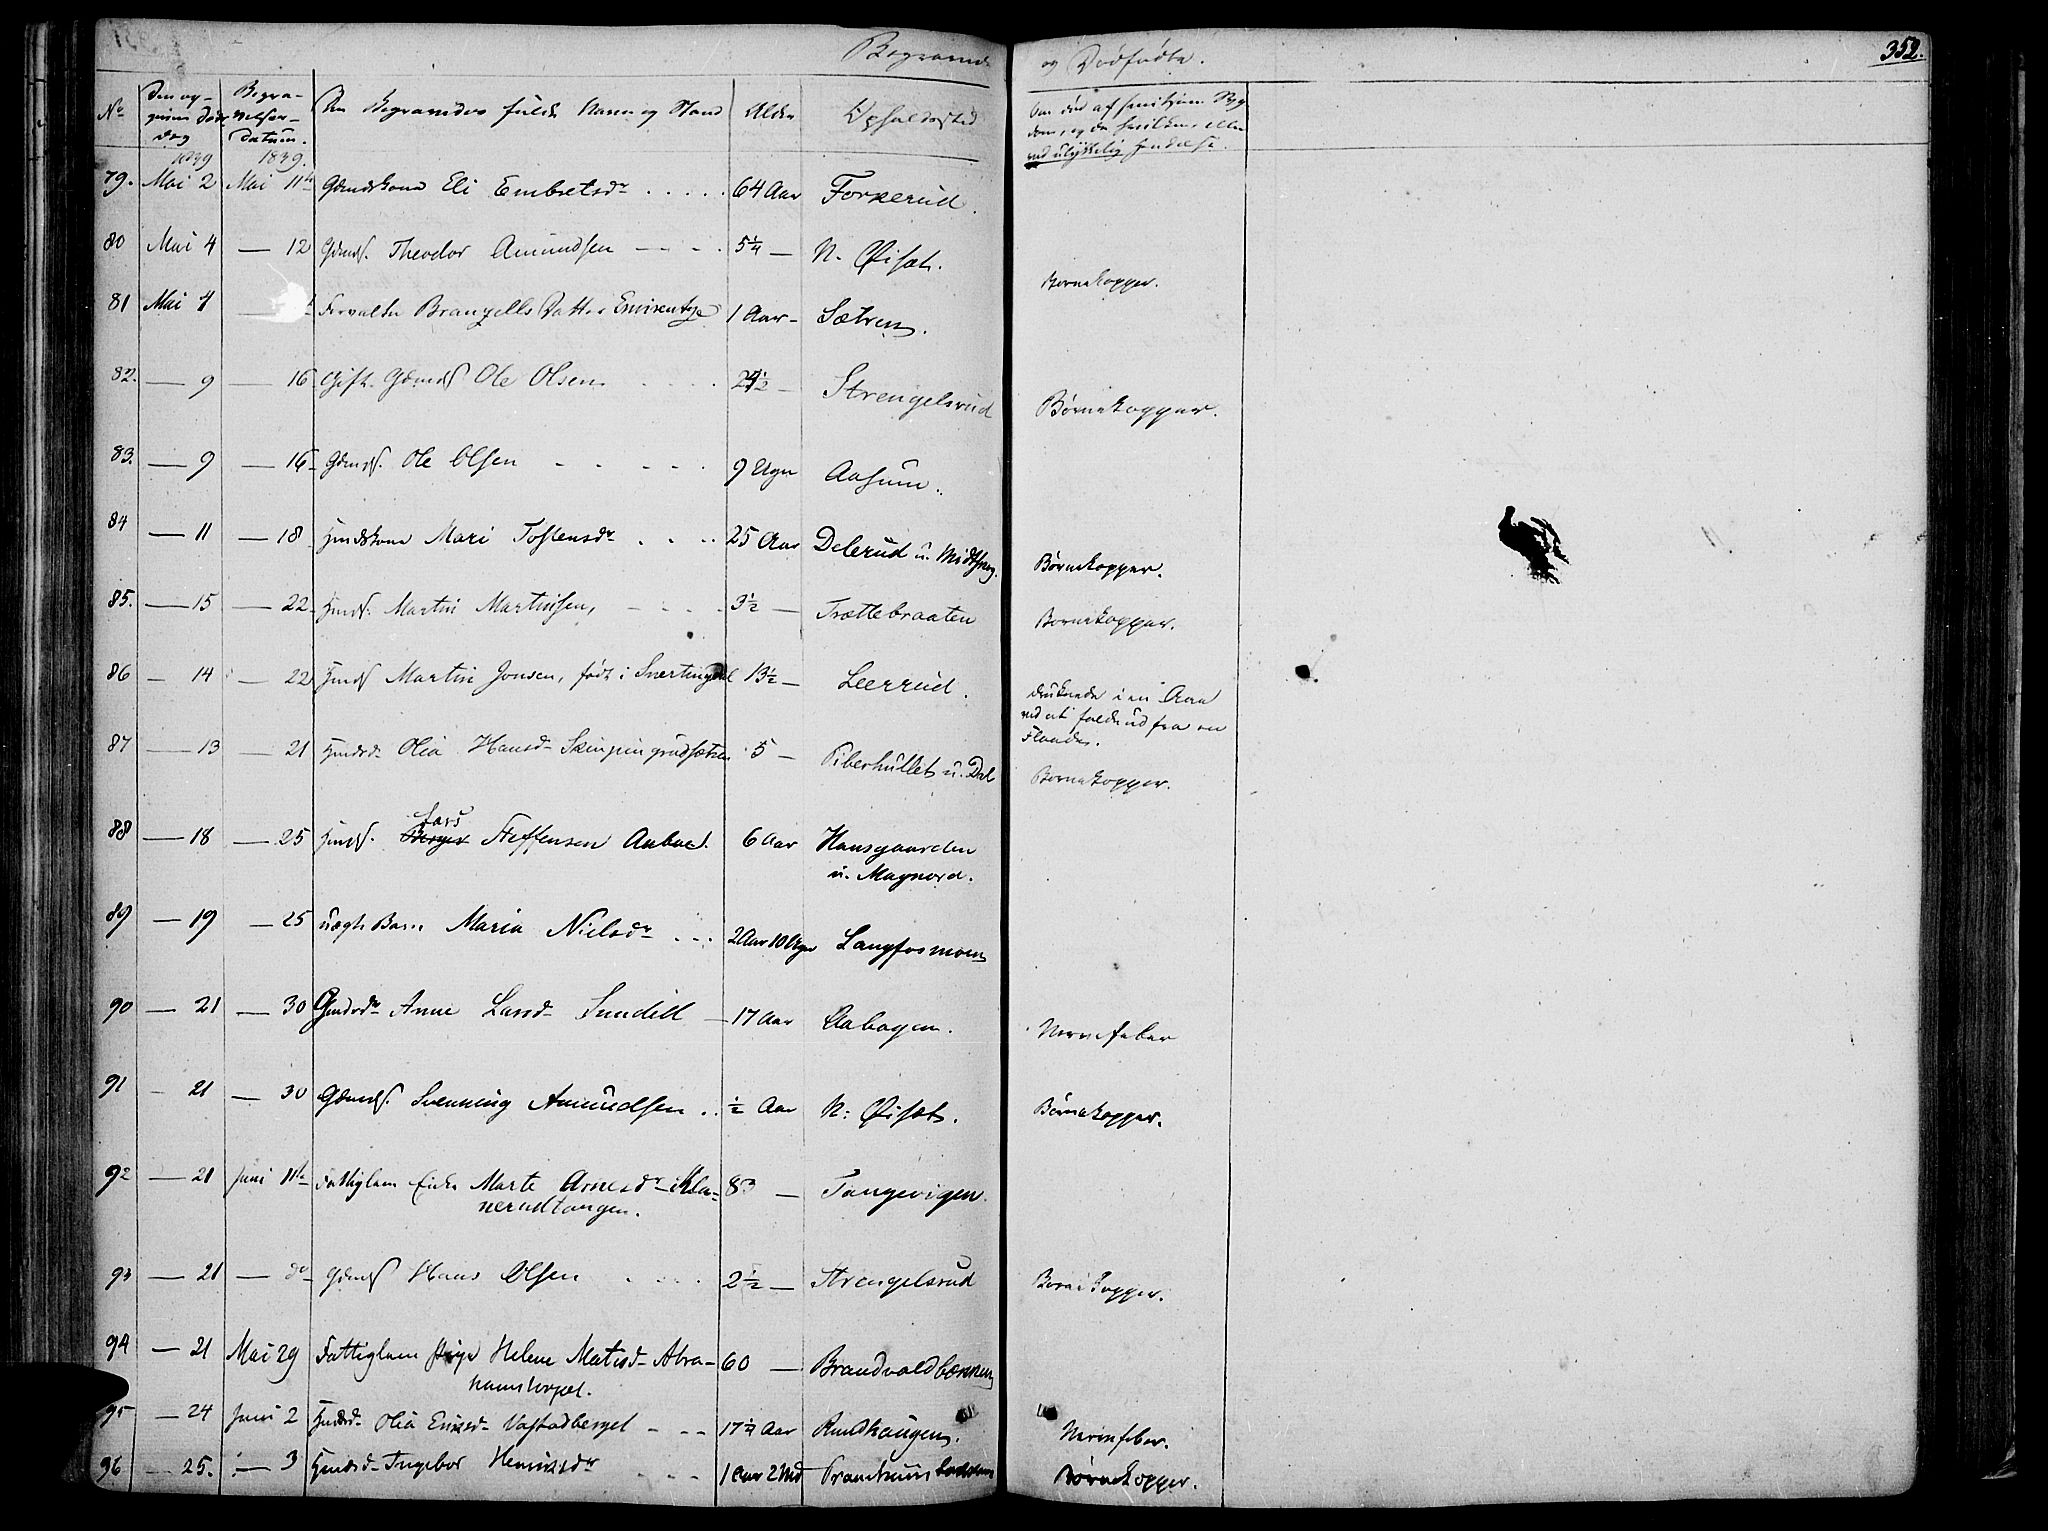 Begravne og Dødfødte. 352.
No Den opgivne Døds Dag Begravelses Datum. Den Begravedes fulde Navn og Stand Alder Opholdssted Om død af smitsom Syg
dom, og da hvilken, eller
ved ulykkelig Hendelse.
1839 1839.
79. Mai 2 Mai 11te Gdmdskone Eli Embretsdr 64 Aar Forkerud.
80 Mai 4 — 12 Gdmds. Theodor Amundsen 5¼ — N. Øiset. Børnekopper.
81 Mai 4 — Forvalter Datter 1 Aar - Sætren.
82. — 9 — 16 Gift. Gdmds Ole Olsen 2½ — Strengelsrud Børnekopper.
83. — 9 — 16 Gdmds. Ole Olsen 9 Uger Aasum.
84 — 11 — 18 Hmdskone Mari Tostensdr 25 Aar Delerud u. Midtskog. Børnekopper.
85. — 15 — 22 Hmds. Martin Martinsen, 3½ — Trættebraaten Børnekopper.
86 — 14 — 22 Hmds Martin Jonsen, født i Snertingdal 13½ — Leerrud. druknede i en Aaa
ved at falde ud fra en
Flaade.
87 — 13 — 21 Hmdsd. Olia Hansd. 5 — Piberhullet u. Dal Børnekopper.
88 — 18 — 25 Hmds. Lars Steffensen 6 Aar Hansgaarden
u. Magnord.
89 — 19 — 25 uægte Barn Maria Nielsdr 2 Aar 10 Uger Langfosmoen
90 — 21 — 30 Gmdsdr Anne Larsd. 17 Aar Aabogen. Nervefeber
91 — 21 — 30 Gdmds. Svenning Amundsen ½ Aar N: Øiset. Børnekopper.
92 — 21 Juni 11te Fattiglem Enke Marte Arnesdr i Kla-
nerudtangen. 83 — Tangevigen.
93 — 21 — do Gdmds Hans Olsen 2½ — Strengelsrud Børnekopper.
94 — 21 Mai 29 Fattiglem Pige Helene Matisd. Abra-
hamstorpet. 60 — Brandvoldbækken
95 — 24 Juni 2 Hmdsd. Olia Eriksd. Vastadberget 17¼ Aar Rudhaugen. Nervefeber.
96 — 25. — 3 Hmdsd. Ingebor Henriksdr 1 Aar 2 Md Børnekopper.